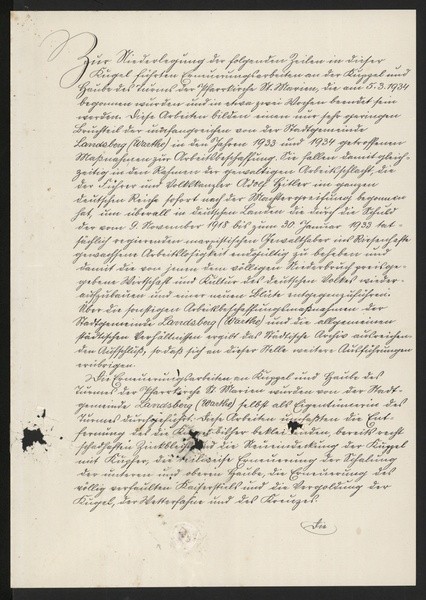 Zur Niederlegung der folgenden Zeilen in dieser
Kugel führten Erneuerungsarbeiten an der Kuppel und
Haube des Turms der Pfarrkirche St. Marien, die am 5.3.1934
begonnen wurden und in etwa zwei Wochen beendet sein
werden. Diese Arbeiten bilden einen nur sehr geringen
Bruchteil der umfangreichen von der Stadtgemeinde
Landsberg (Warthe) in den Jahren 1933 und 1934 getroffenen
Maßnahmen zur Arbeitsbeschaffung. Sie fallen damit gleich-
zeitig in den Rahmen der gewaltigen Arbeitsschlacht, die
der Führer und Volkskanzler Adolf Hitler im ganzen
deutschen Reich sofort nach der Machtergreifung begonnen
hat, um überall in deutschen Landen die durch die Schuld
der vom 9. November 1918 bis zum 30. Januar 1933 tat-
sächlich regierenden marxistischen Gewalthaber ins Riesenhafte
gewachsene Arbeitslosigkeit endgültig zu beheben und
damit die von jenen dem völligen Niederbruch preisge-
gebene Wirtschaft und Kultur des deutschen Volkes wieder
aufzubauen und einer neuen Blüte entgegenzuführen.
Über die sonstigen Arbeitsbeschaffungsmaßnahmen der
Stadtgemeinde Landsberg (Warthe) und die allgemeinen
städtischen Verhältnisse ergibt das Städtische Archiv ausreichen-
den Aufschluß, so daß sich an dieser Stelle weitere Ausführungen
erübrigen.
Die Erneuerungsarbeiten an Kuppel und Haube des
Turmes der Pfarrkirche St. Marien wurden von der Stadt-
gemeinde Landsberg (Warthe) selbst als Eigentümerin des
Turmes durchgeführt. Diese Arbeiten umfaßten die Ent-
fernung des die bisher bekleidenden, bereits recht
schadhaften Zinkblechs und die Neueindeckung der Kuppel
mit Kupfer, die teilweise Erneuerung der Schalung
der unteren und oberen Haube, die Erneuerung des
völlig verfaulten Kaiserstiels und die Vergoldung der
Kugel, der Wetterfahne und des Kreuzes.
Die